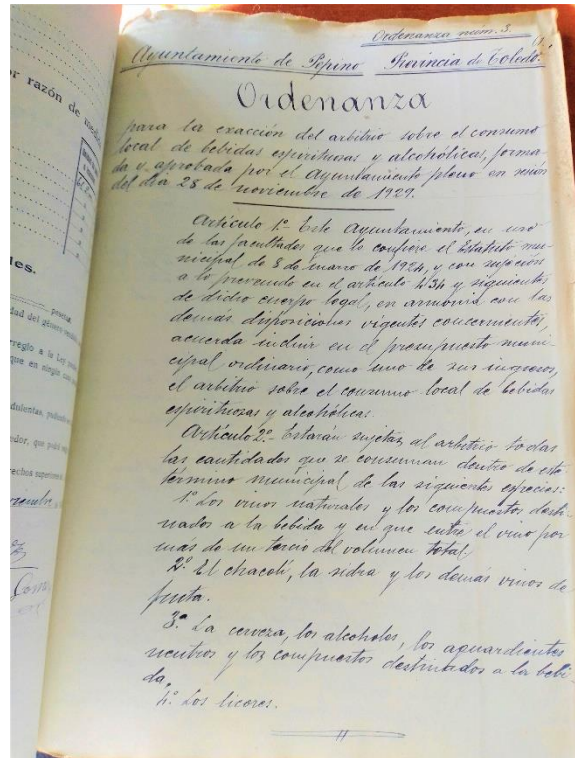 Ordenanza núm. 3.
Ayuntamiento de Pepino Provincia de Toledo.
Ordenanza
para la exacción del arbitrio sobre el consumo
local de bebidas espirituosas y alcohólicas, forma-
da y aprobada por el Ayuntamiento pleno en sesión
del día 28 de noviembre de 1929.
Artículo 1º- Este Ayuntamiento, en uso
de las facultades que le confiere el Estatuto mu-
nicipal de 8 de marzo de 1924, y con sujeción
a lo prevenido en el artículo 434 y siguientes
de dicho cuerpo legal, en armonía con las
demás disposiciones vigentes concernientes,
acuerda incluir en el presupuesto muni-
cipal ordinario, como uno de sus ingresos,
el arbitrio sobre el consumo local de bebidas
espirituosas y alcohólicas.
Artículo 2º- Estarán sujetas al arbitrio todas
las cantidades que se consuman dentro de este
término municipal de las siguientes especies:
1º Los vinos naturales y los compuestos desti-
nados a la bebida y en que entre el vino por
más de un tercio del volumen total.
2º El chacolí, la sidra y los demás vinos de
fruta.
3º La cerveza, los alcoholes, los aguardientes
neutros y los compuestos destinados a la bebi-
da.
4º Los licores.
or razón de
les.
dad del género
arreglo a la Ley
que en ningún
edor, que podrá
rechos